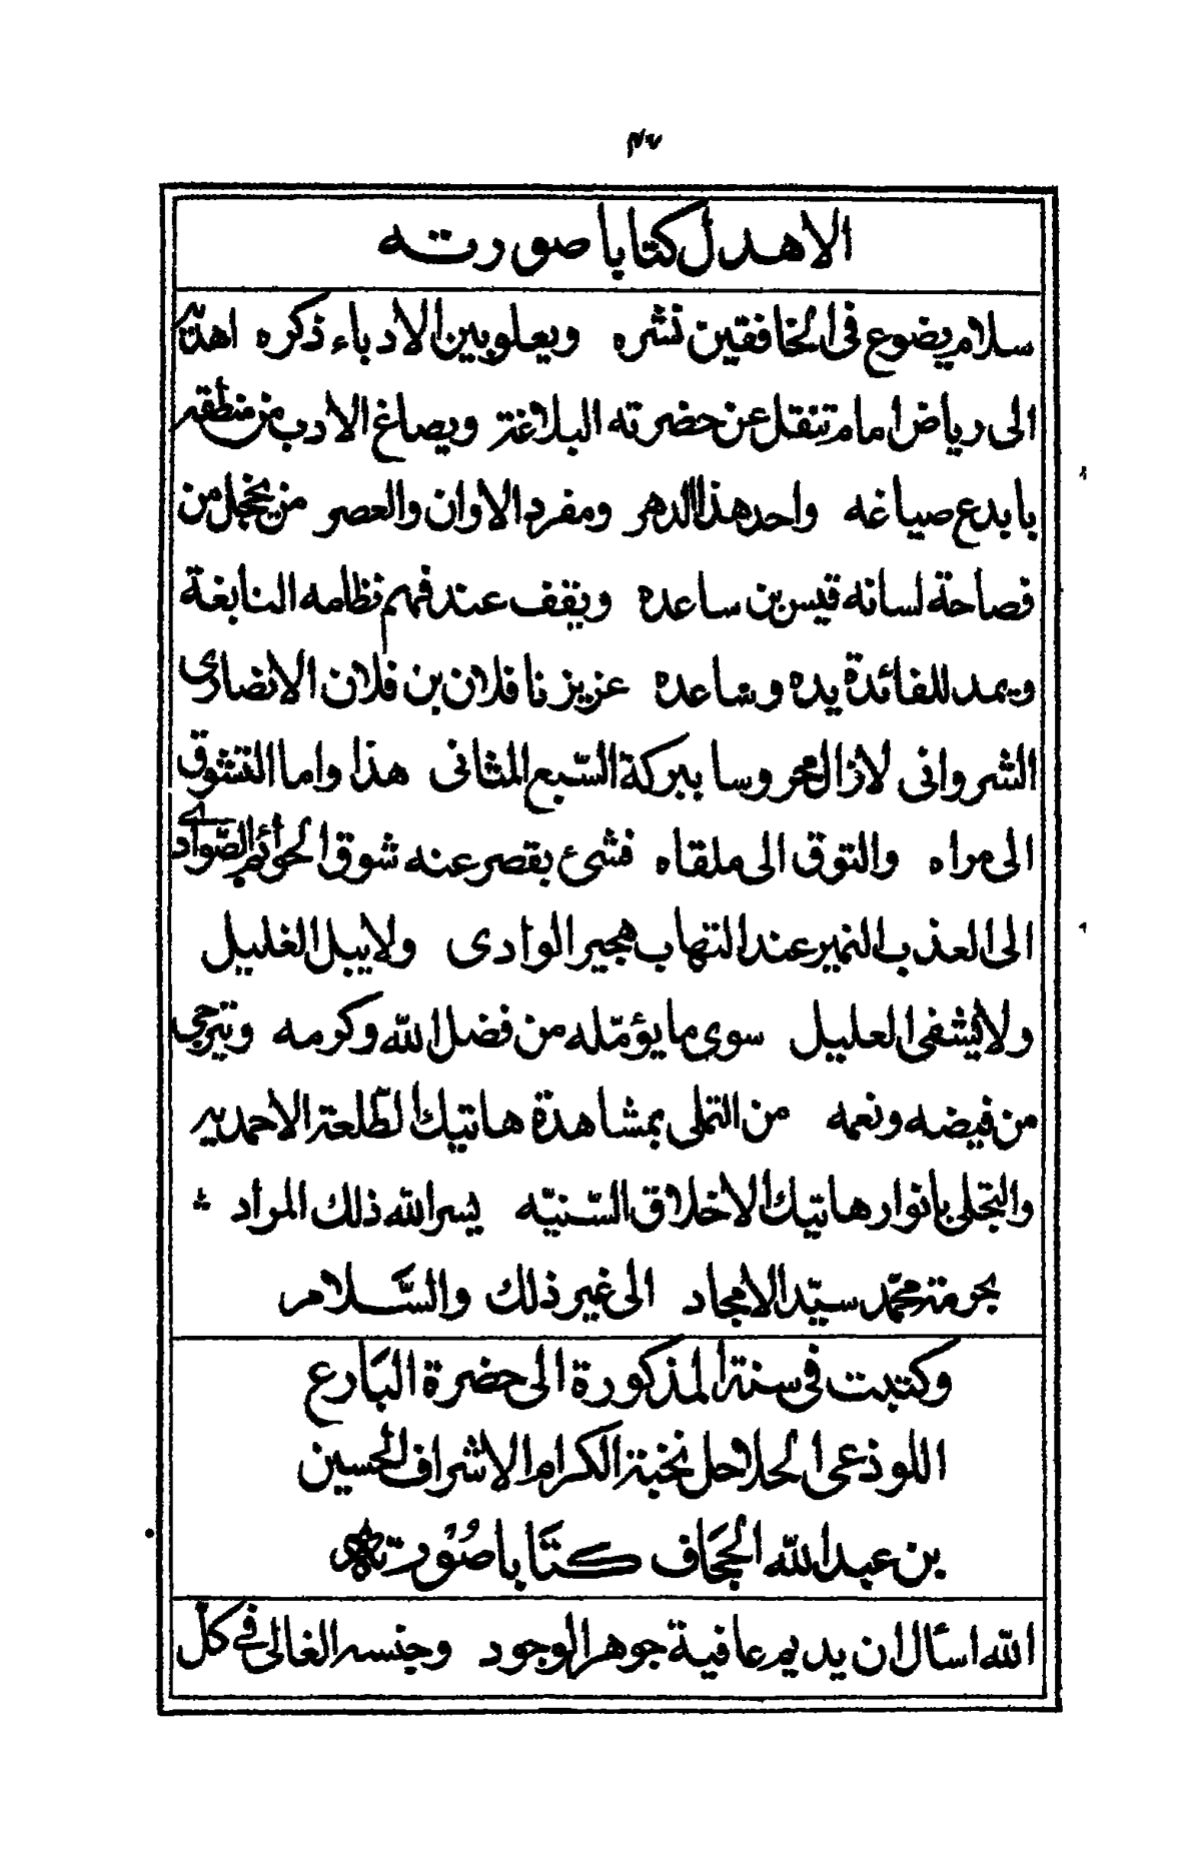 الاهدل كتابا صورته
سلام يضوع فى الخافقين نشره ويعلو بين الادباء ذكره اهديه
الى رياض امام تنقل عن حضرته البلاغة ويصاغ الادب من منطقه
بابدع صياغه واحد هذا الدهر ومفرد الاوان والعصر من يخجل من
فصاحة لسانه قيس بن ساعده ويقف عند فهم نظامه النابغة
ويمد للفائدة يده وساعده عزيزنا فلان بن فلان الانصارى
الشروانى لازال محروسا ببركة السّبع المثانى هذا واما التشوق
الى مراه والتوق الى ملقاه فشئ يقصر عنه شوق الحوائم الصّوادے
الى العذب النمير عند التهاب هجير الوادى ولا يبل الغليل
ولا يشفى العليل سوى ما يؤمّله من فضل الله وكرمه ويترجى
من فيضه ونعمه من التملى بمشاهدة هاتيك الطّلعة الاحمديه
والتجلى بانوار هاتيك الاخلاق السّنيّه يسر الله ذلك المراد
بحرمة محمّد سيّد الامجاد الى غير ذلك والسَّلام
وكتبت فى سنة المذكورة الى حضرة البَارع
اللوذعى الحلاحل نخبة الكرام الاشراف الحسين
بن عبد الله الجحَاف كتَابا صُوْرته
الله اسأل ان يديم عافية جوهر الوجود وجنسه الغالى فے كلّ